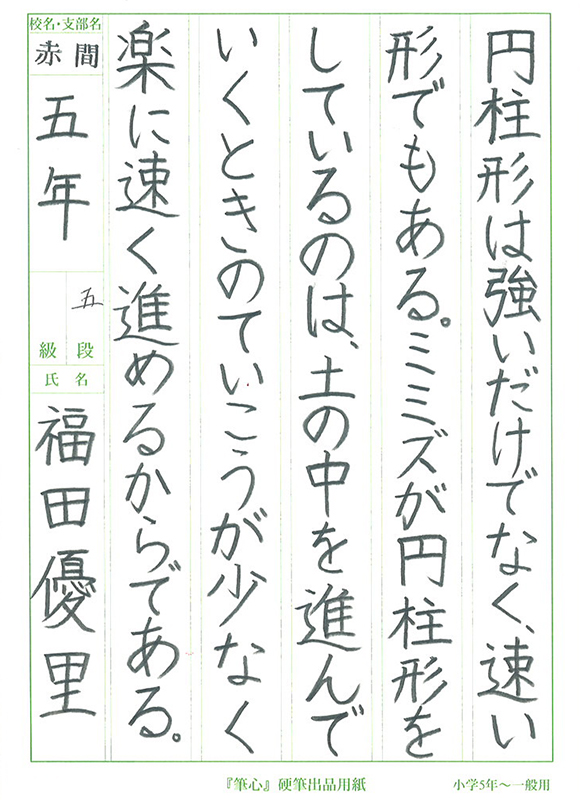 円柱形は強いだけでなく、速い
形でもある。ミミズが円柱形を
しているのは、土の中を進んで
いくときのていこうが少なく
楽に速く進めるからである。
校名・支部名
赤間
五年
五
段
級
氏名
福田優里
『筆心』硬筆出品用紙
小学5年〜一般用